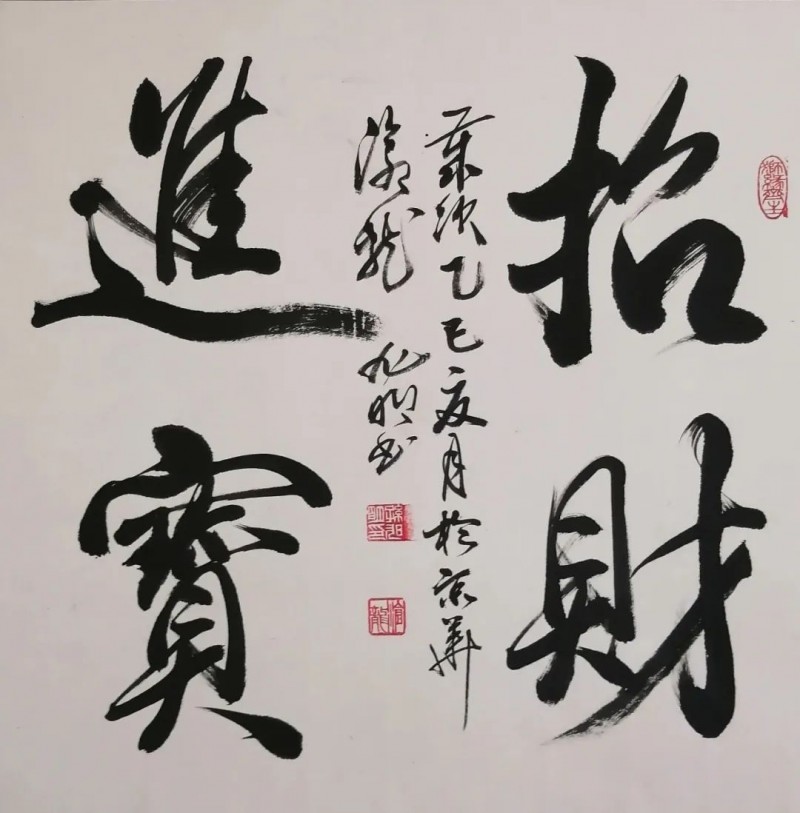 招財
進寶
歲次乙巳夏月於京華
龍
書